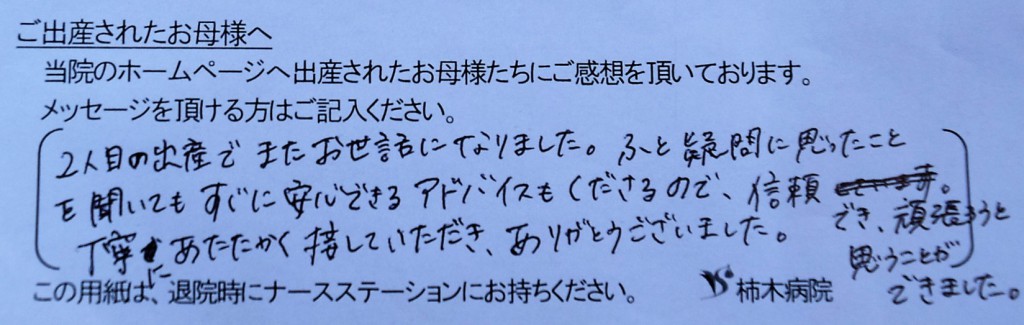 ご出産されたお母様へ
当院のホームページへ出産されたお母様たちにご感想を頂いております。
メッセージを頂ける方はご記入ください。
2人目の出産でまたお世話になりました。ふと疑問に思ったこと
を聞いてもすぐに安心できるアドバイスもくださるので、信頼
でき、頑張ろうと
思うことが
できました。
丁寧にあたたかく接していただき、ありがとうございました。
この用紙は、退院時にナースステーションにお持ちください。
柿木病院